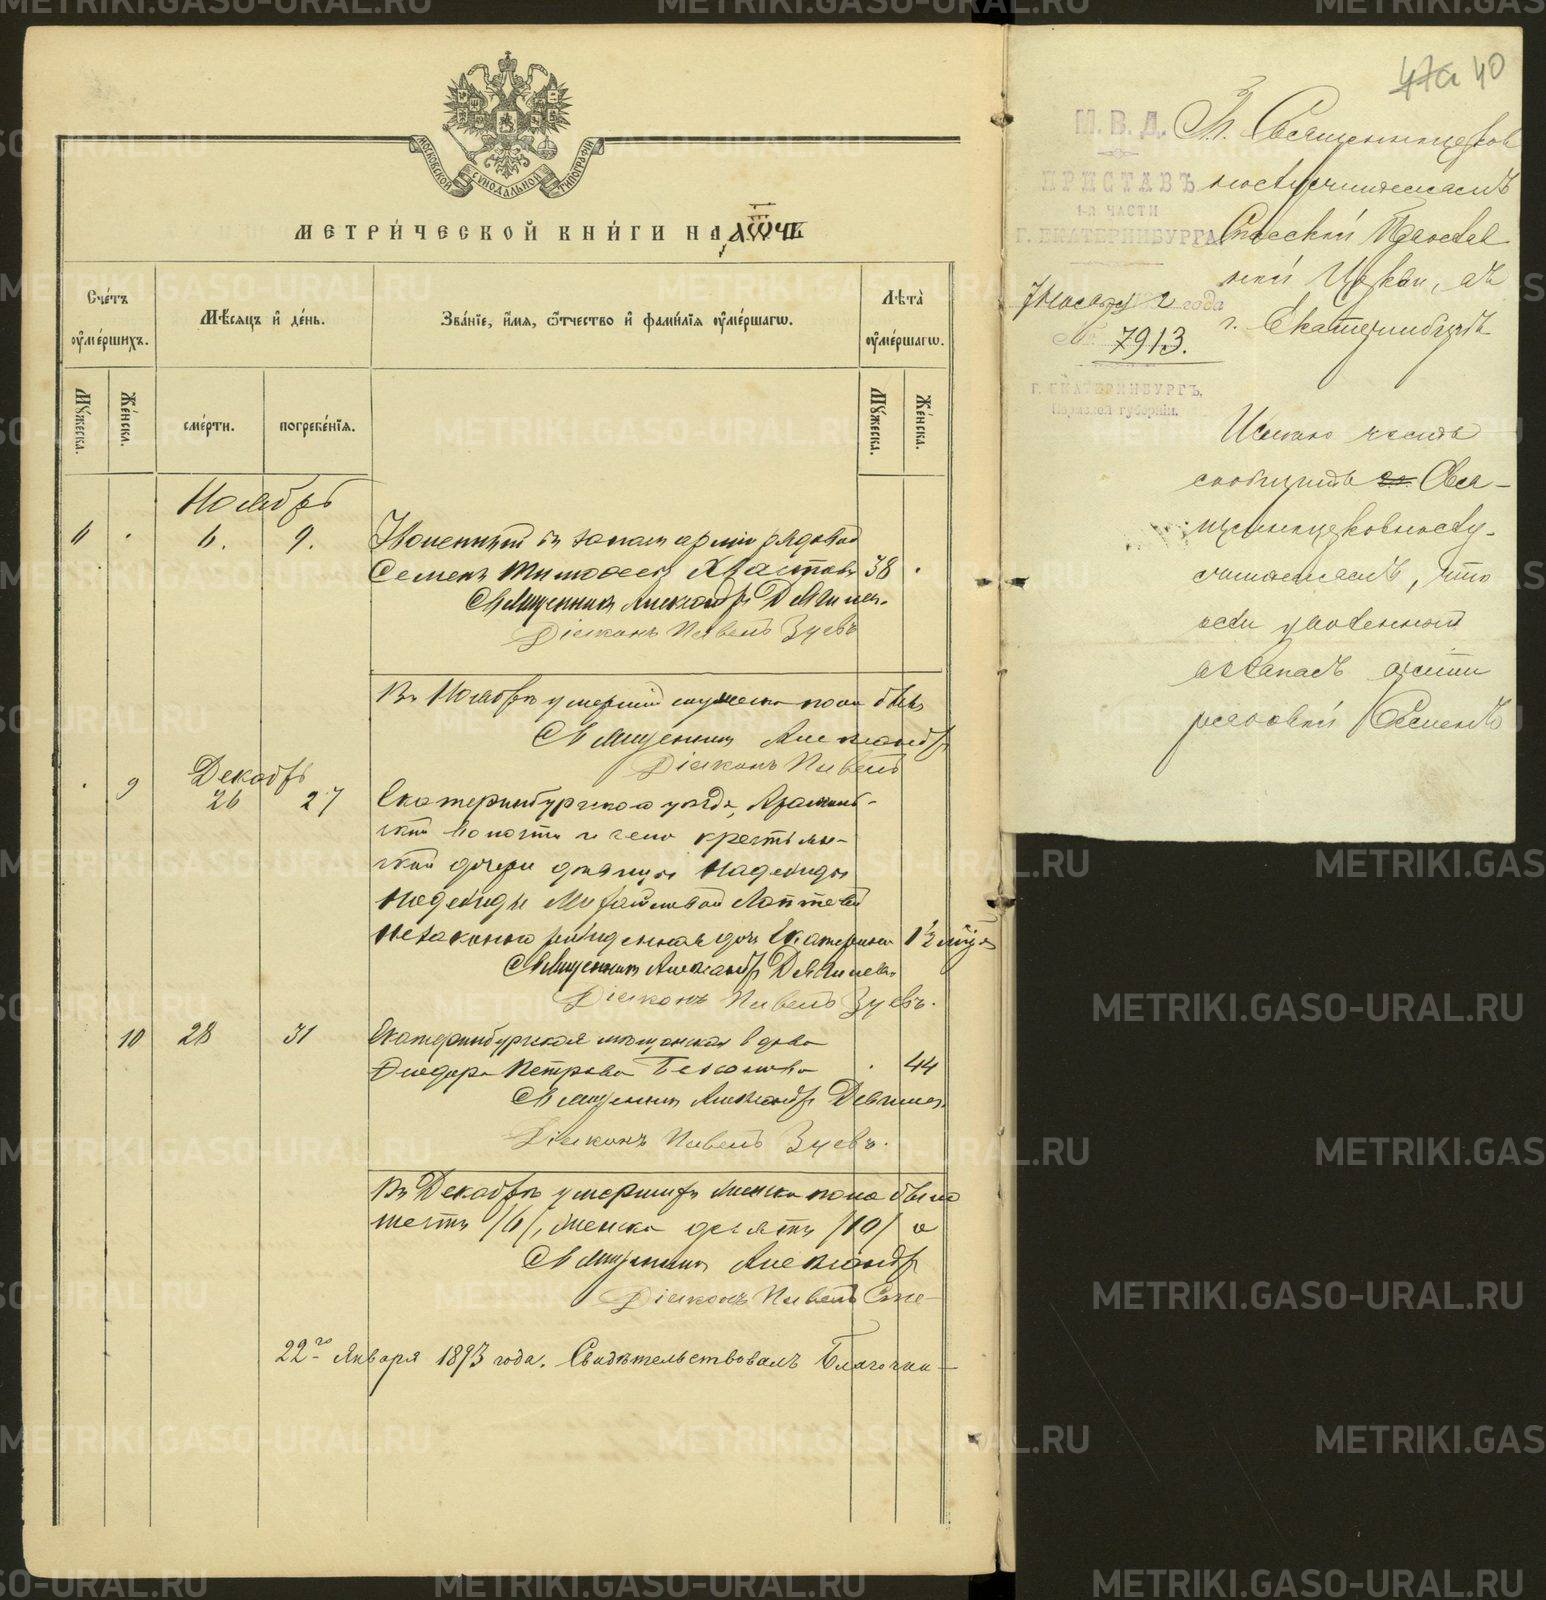 МОСКОВСКОЙ СѴНОДАЛЬНОЙ ТИПОГРАФИИ
МЕТРИ́ЧЕСКОЙ КНИ́ГИ НА ҂АѾЧВ
Сче́тъ ᲂу҆ме́ршихъ.
Мѣ́сяцъ и҆ де́нь.
Зва́нїе, и҆́мѧ, ѻ҆́тчество и҆ фамі́лїѧ ᲂу҆ме́ршагѡ.
Лѣ́та ᲂу҆ме́ршагѡ.
Мꙋ́жеска.
Же́нска.
сме́рти.
погребе́нїѧ.
Мꙋ́жеска.
Же́нска.
Ноябрь
6 . 6. 9. Уволенный въ запасъ арміи рядовой
Семенъ Тимофеевъ Хвастовъ 38 .
Священникъ Александръ
Діаконъ Павелъ Зуевъ
Въ Ноябрѣ умершій мужеска пола
Священникъ Александръ
Діаконъ Павелъ
Декабрь
. 9 26 27 Екатеринбургскаго уѣзда, Арамиль-
ской волости и села крестьян-
ской дочери дѣвицы Надежды
Надежды Михайловой Лаптевой
незаконнорожденная дочь Екатерина 1½ мѣс.
Священникъ Александръ
Діаконъ Павелъ Зуевъ.
10 28 31 Екатеринбургская мѣщанская вдова
Ѳеодора Петрова . 44
Священникъ Александръ
Діаконъ Павелъ Зуевъ.
Въ Декабрѣ умершихъ женска пола было
шесть /6/, женска десять /10/ а
Священникъ Александръ
Діаконъ Павелъ
22го Января 1893 года. Свидѣтельствовалъ Благочин-
47а 40
М. В. Д.
ПРИСТАВЪ
1-й ЧАСТИ
Г. ЕКАТЕРИНБУРГА
Ноября 2 года
№ 7913.
Г. ЕКАТЕРИНБУРГЪ,
Пермской губерніи.
Гг. Священноцерков
нослужителямъ
Спасской
ной Церкви, въ
г. Екатеринбургѣ
Имѣю честь
сообщить Свя-
щенноцерковнослу-
жителямъ, что
уволенный
въ запасъ арміи
рядовой Семенъ